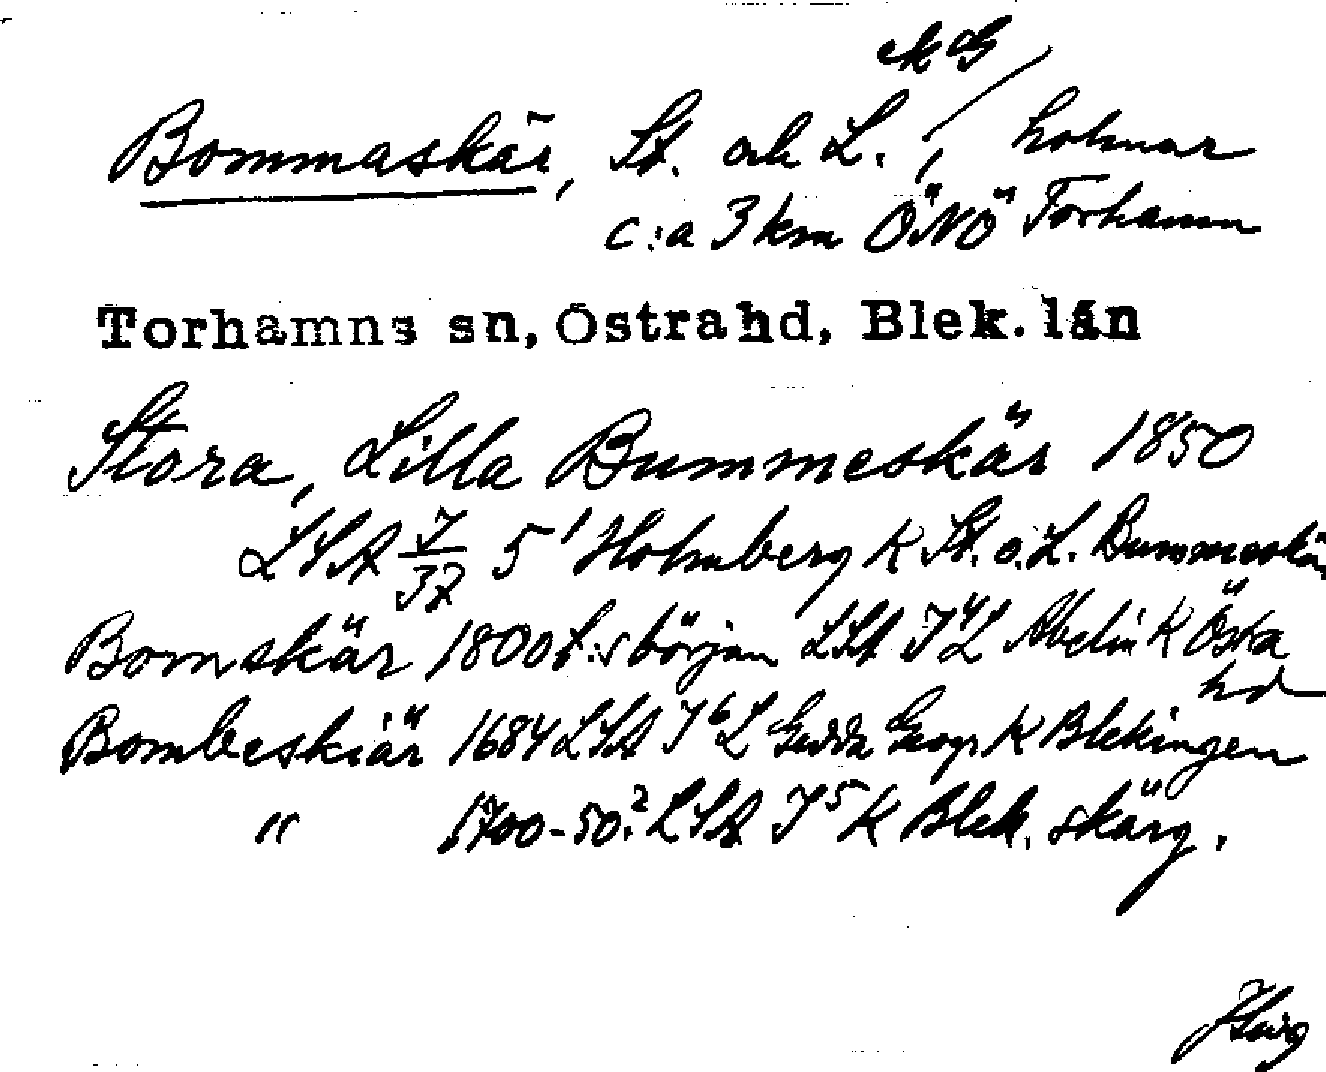 ek G
Bommaskär, St. och L., holmar
c:a 3 km ÖNÖ Torhamn
Torhamns sn, Östra hd, Blek. län
Stora, Lilla Bummeskär 1850
LSA 5 Holmberg K St. o. L. Bummeskär
Bomskär 1800 t:s början LSA J4L Abelin K Östra
hd
Bombeskiär 1684 LSA J6L Gedda Geogr K Blekingen
" 1700-50? LSA J5 K Blek. skärg.